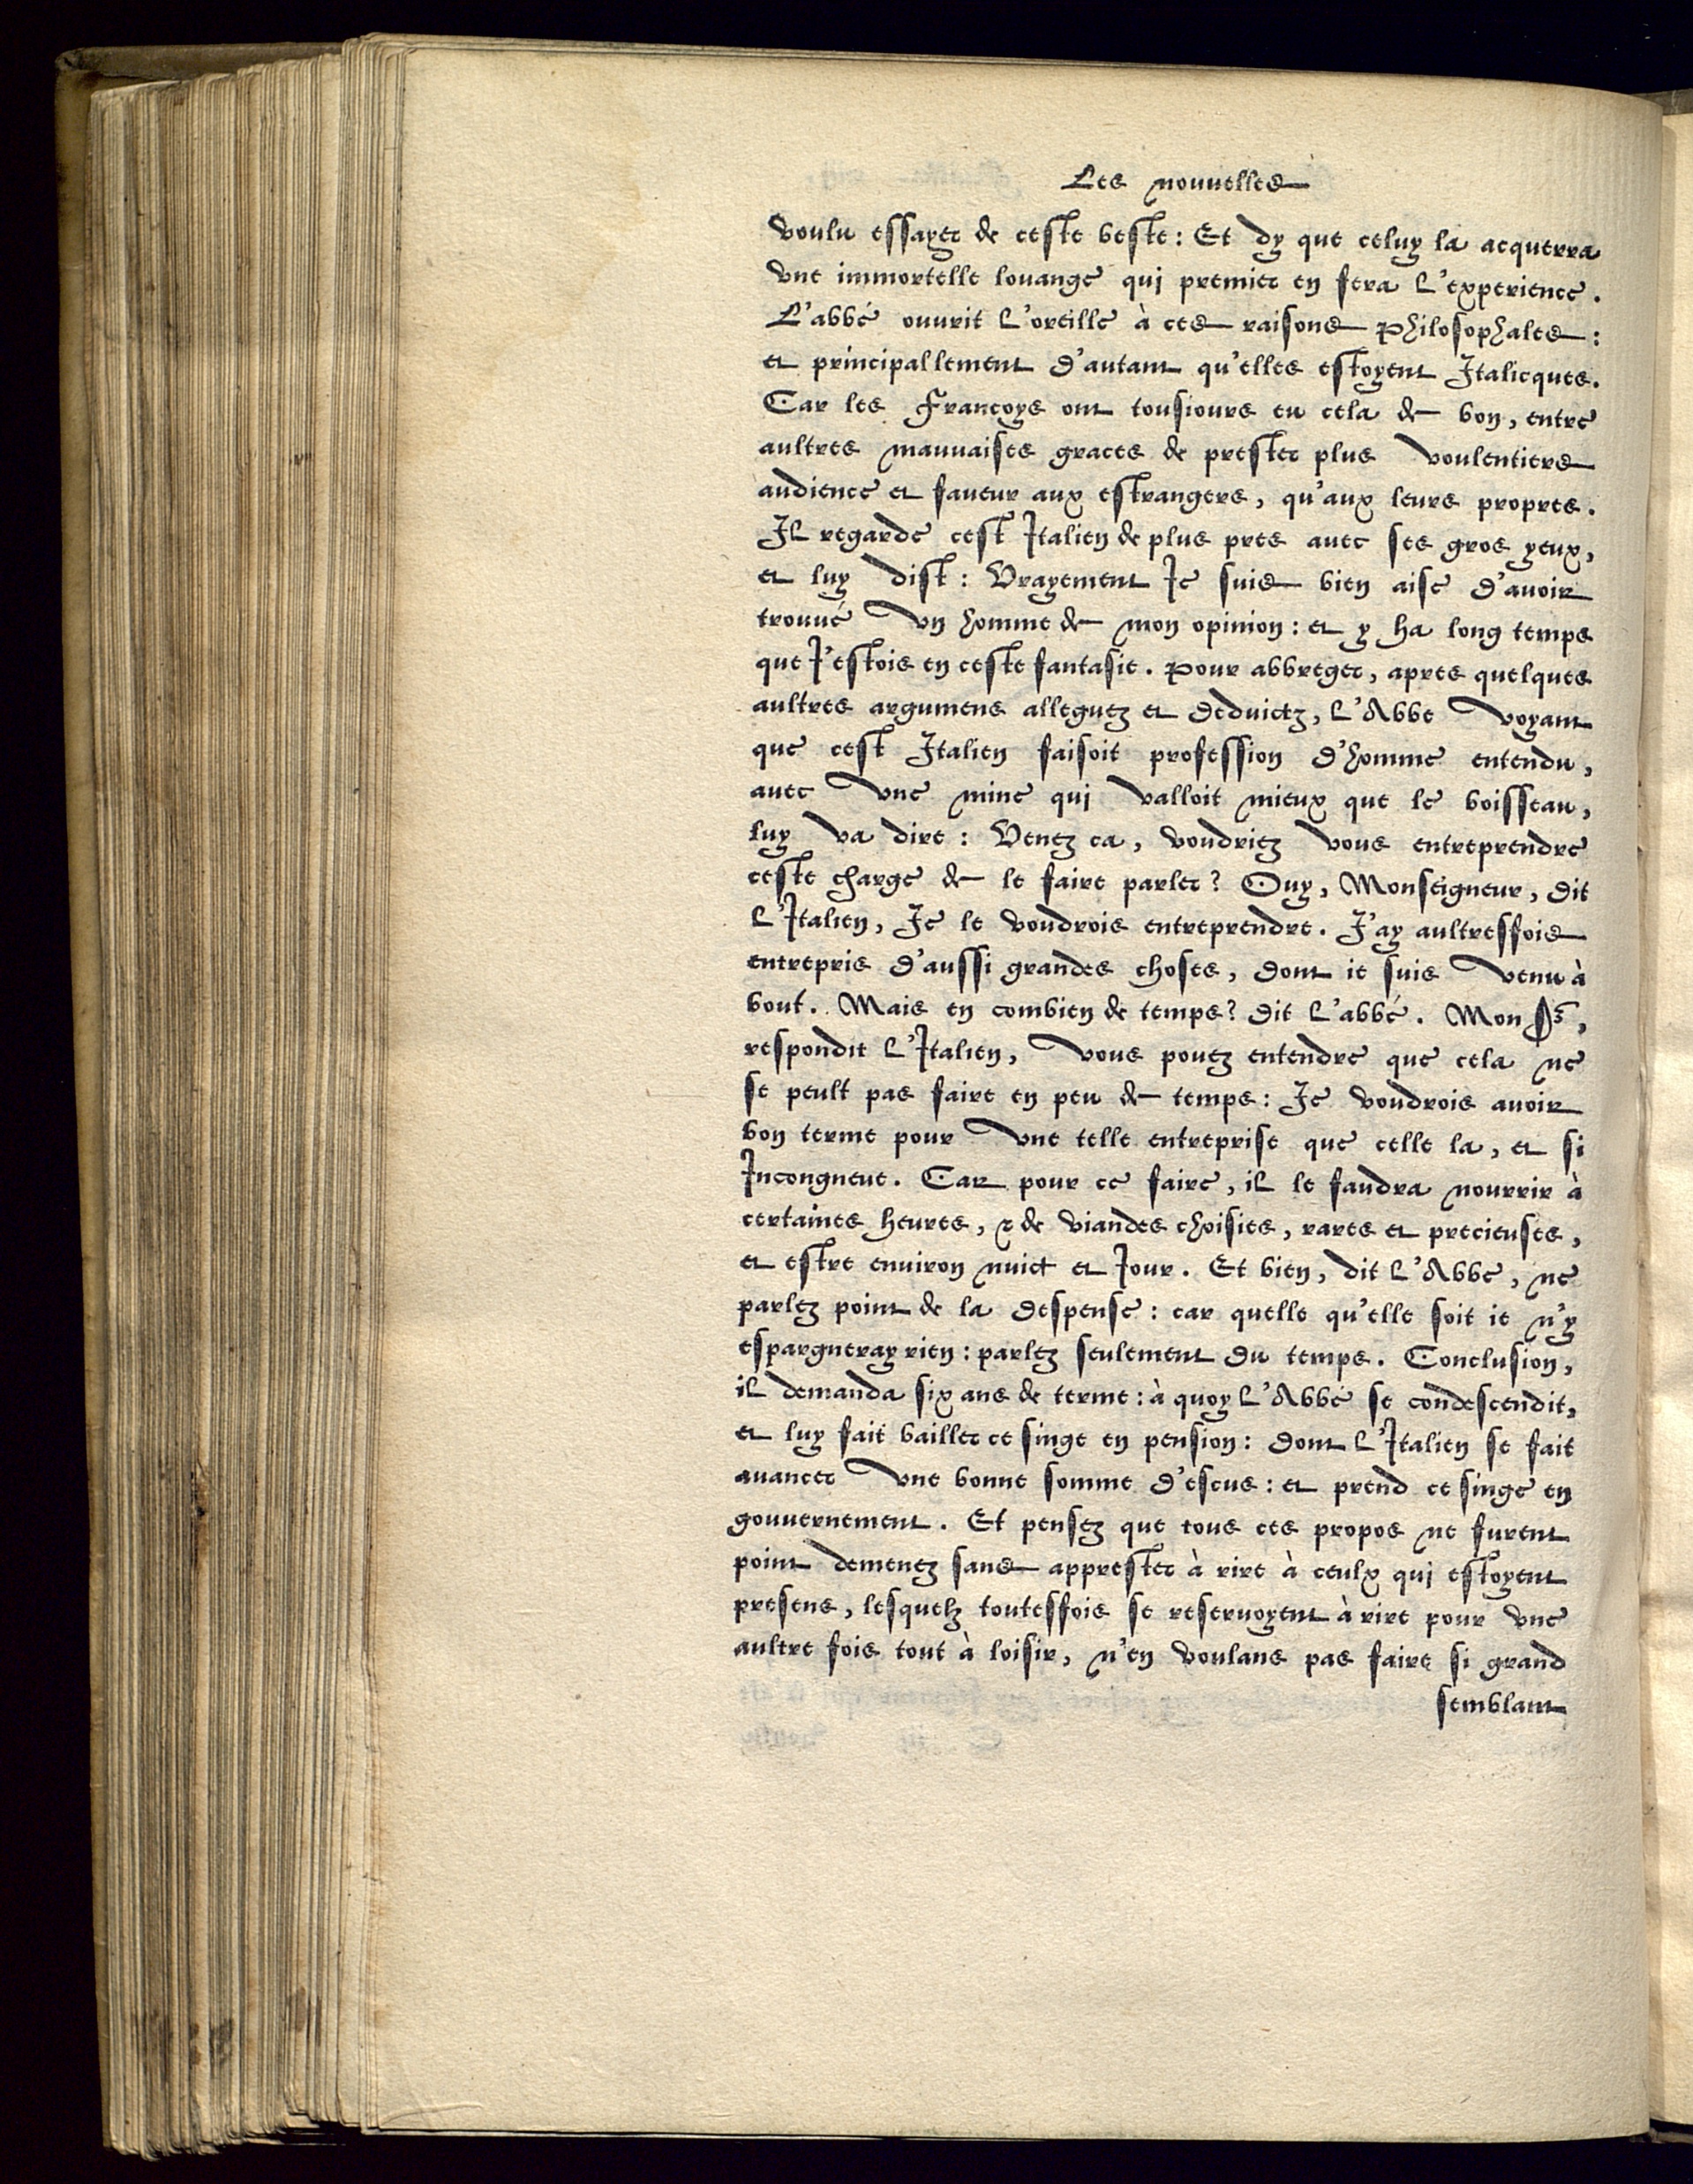 Les nouuelles
voulu essayer de ceste beste: Et dy que celuy la acquerra
vne immortelle louange qui premier en fera l'experience.
L'abbé ouurit l'oreille à ces raisons philosophales:
et principallement d'autant qu'elles estoyent Italicques.
Car les Francoys ont tousiours eu cela de bon, entre
aultres mauuaises graces de prester plus voulentiers
audience et faueur aux estrangers, qu'aux leurs propres.
Il regarde cest Italien de plus pres auec ses gros yeux,
et luy dist: Vrayement Ie suis bien aise d'auoir
trouué vn homme de mon opinion: et y ha long temps
que I'estois en ceste fantasie. Pour abbreger, apres quelques
aultres argumens alleguez et deduictz, l'Abbe voyant
que cest Italien faisoit profession d'homme entendu,
auec vne mine qui valloit mieux que le boisseau,
luy va dire: Venez ca, voudriez vous entreprendre
ceste charge de le faire parler? Ouy, Monseigneur, dit
l'Italien, Ie le voudrois entreprendre. I'ay aultresfois
entrepris d'aussi grandes choses, dont ie suis venu à
bout. Mais en combien de temps? dit l'abbé. Mon Sr,
respondit l'Italien, vous pouez entendre que cela ne
se peult pas faire en peu de temps: Ie voudrois auoir
bon terme pour vne telle entreprise que celle la, et si
Incongneue. Car pour ce faire, il le faudra nourrir à
certaines heures, & de viandes choisies, rares et precieuses,
et estre enuiron nuict et Iour. Et bien, dit l'Abbe, ne
parlez point de la despense: car quelle qu'elle soit ie n'y
espargneray rien: parlez seulement du temps. Conclusion,
il demanda six ans de terme: à quoy l'Abbé se condescendit,
et luy fait bailler ce singe en pension: dont l'Italien se fait
auancer vne bonne somme d'escus: et prend ce singe en
gouuernement. Et pensez que tous ces propos ne furent
point demenez sans apprester à rire à ceulx qui estoyent
presens, lesquelz toutesfois se reseruoyent à rire pour vne
aultre fois tout à loisir, n'en voulans pas faire si grand
semblant